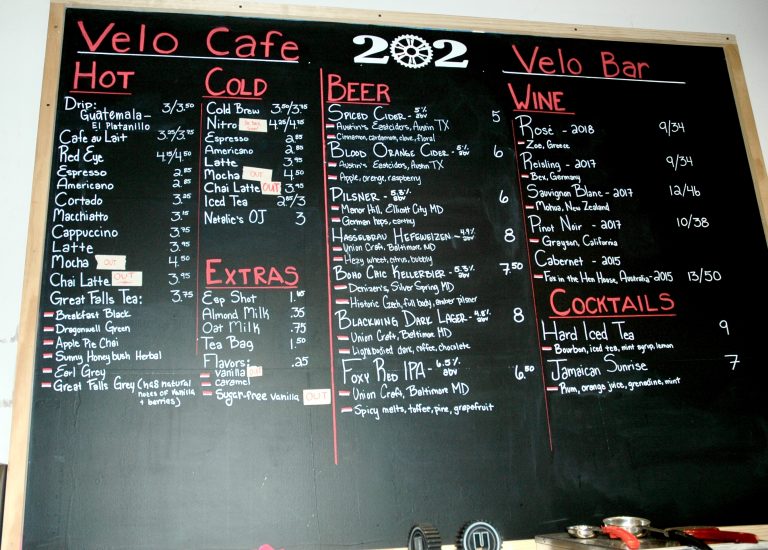 Velo Cafe
202
Velo Bar
HOT
Drip: 3/3.50
Guatemala-
El Platanillo
Cafe au Lait 3.25/3.75
Red Eye 4.15/4.50
Espresso 2.85
Americano 2.85
Cortado 3.25
Macchiato 3.15
Cappuccino 3.75
Latte 3.95
Mocha OUT 4.50
Chai Latte OUT 3.95
Great Falls Tea: 3.75
Breakfast Black
Dragonwell Green
Apple Pie Chai
Sunny Honeybush Herbal
Earl Grey
Great Falls Grey (has natural
notes of vanilla
+ berries)
COLD
Cold Brew 3.50/3.95
Nitro 4.25/4.75
Espresso 2.85
Americano 2.85
Latte 3.95
Mocha OUT 4.50
Chai Latte OUT 3.95
Iced Tea 2.85/3
Natalie's OJ 3
EXTRAS
Esp Shot
Almond Milk .35
Oat Milk .75
Tea Bag 1.50
Flavors: .25
vanilla OUT
caramel
Sugar-free vanilla OUT
BEER
Spiced Cider - 5% abv 5
Austin's Eastciders, Austin TX
Cinnamon, cardamom, clove, floral
Blood Orange Cider - 5% abv 6
Austin's Eastciders, Austin TX
Apple, orange, raspberry
Pilsner - 5.3% abv 6
Manor Hill, Ellicott City MD
German hops, earthy
Hasselbrau Hefeweizen - 4.9% abv 8
Union Craft, Baltimore MD
Hazy wheat, citrus, bubbly
Boho Chic Kellerbier - 5.3% abv 7.50
Denizen's, Silver Spring MD
Historic Czech, full body, amber pilsner
Blackwing Dark Lager - 4.8% abv 8
Union Craft, Baltimore MD
Light bodied dark, coffee, chocolate
Foxy Red IPA - 6.5% abv 6.50
Union Craft, Baltimore MD
Spicy malts, toffee, pine, grapefruit
WINE
Rosé - 2018 9/34
Zoe, Greece
Reisling - 2017 9/34
Bex, Germany
Sauvignon Blanc - 2017 12/46
Mohua, New Zealand
Pinot Noir - 2017 10/38
Grayson, California
Cabernet - 2015
Fox in the Hen House, Australia-2015 13/50
COCKTAILS
Hard Iced Tea 9
Bourbon, iced tea, mint syrup, lemon
Jamaican Sunrise 7
Rum, orange juice, grenadine, mint